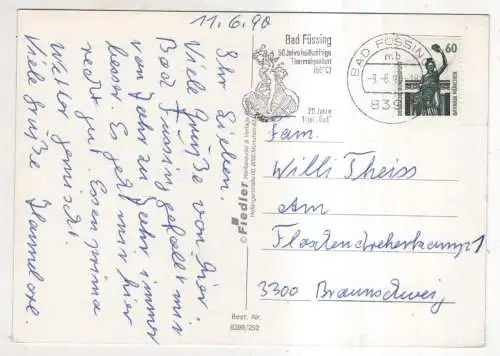 11.6.90
Ihr Lieben.
Viele Grüße von hier.
Bad Füssing gefällt mir
von Jahr zu Jahr immer
besser. Es geht mir hier
recht gut. Essen prima
Wetter gemischt.
Viele Grüße Hannelore.
© Fiedler
Best. Nr.
8399/252
Bad Füssing
50 Jahre heilkräftige
Thermalquellen
(56°C)
25 Jahre
Titel „Bad“
BAD FÜSSING
mb
839
60
Fam.
Willi Theiss
Am
Flachsrottenkamp 1
3300 Braunschweig